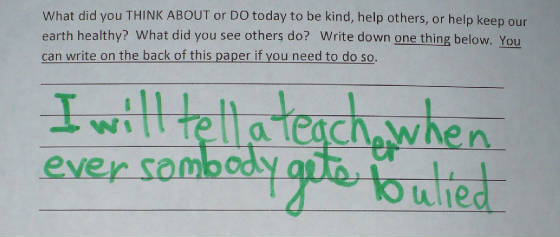 What did you THINK ABOUT or DO today to be kind, help others, or help keep our
earth healthy? What did you see others do? Write down one thing below. You
can write on the back of this paper if you need to do so.
I will tell a teacher when
ever sombody gets bulied